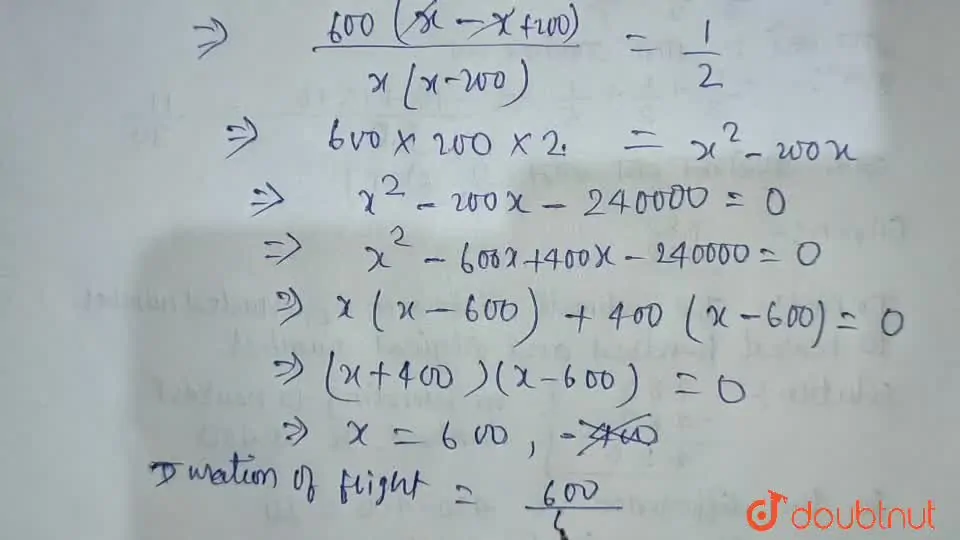 ⇒ 600 (x - x + 200) / x (x - 200) = 1/2
⇒ 600 × 200 × 2. = x² - 200x
⇒ x² - 200x - 240000 = 0
⇒ x² - 600x + 400x - 240000 = 0
⇒ x (x - 600) + 400 (x - 600) = 0
⇒ (x + 400) (x - 600) = 0
⇒ x = 600, - 400
Duration of flight = 600 /
doubtnut